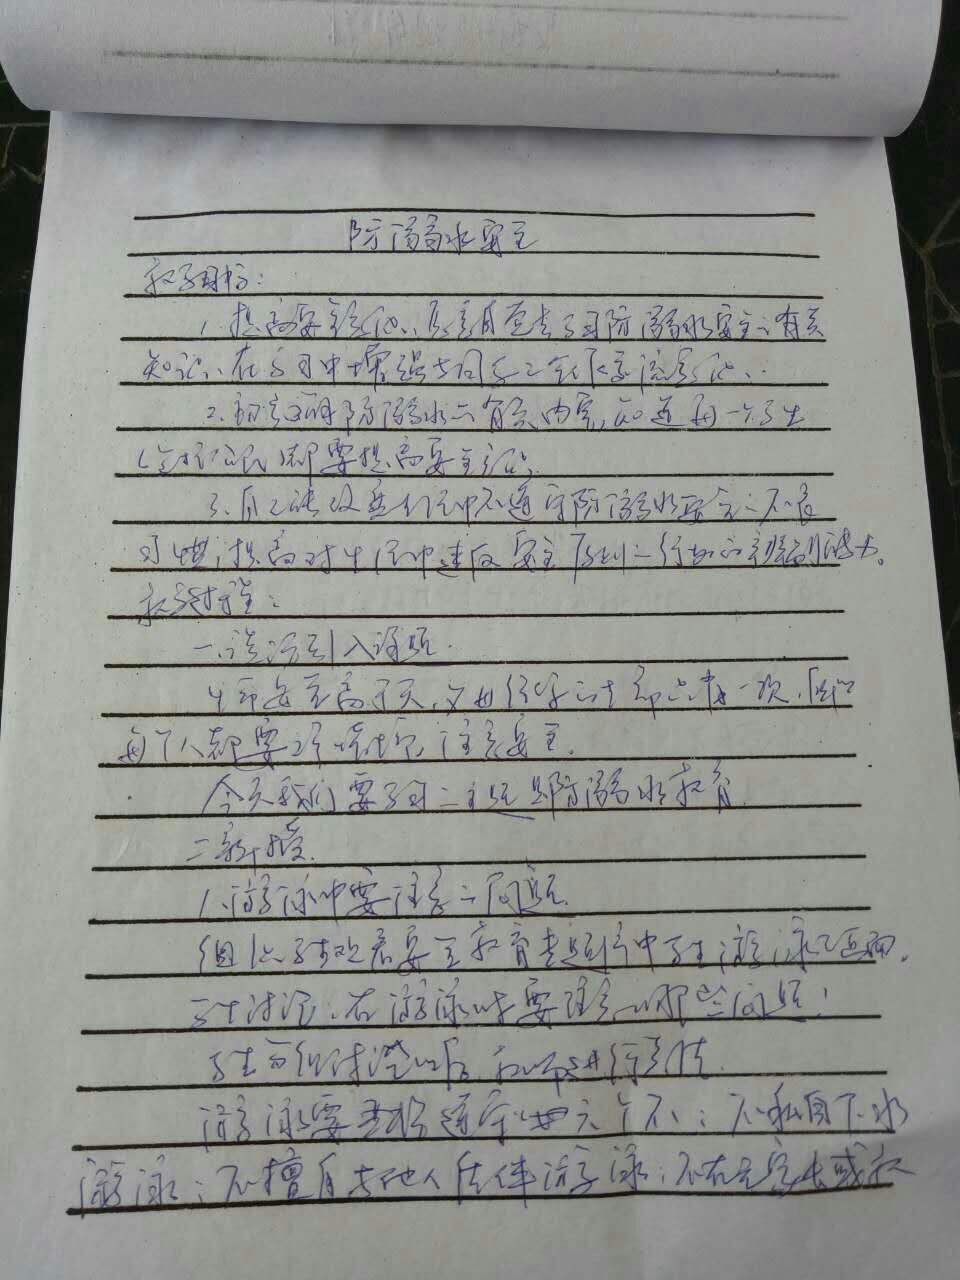 防溺水安全
教学目标:
1、提高安全意识,学习防溺水安全的有关
知识,在学习中增强与同学
2、防溺水的有关内容,知道每一个学生
都要提高安全意识。
3、自己能改正生活中不遵守防溺水安全的不良
习惯,提高对生活中违反安全原则的行为的辨别能力。
教学过程:
一、谈话引入课题.
生命安全高于天,父母给予的生命只有一次,所以
每个人都要珍惜生命,注意安全.
今天我们要学习的主题是防溺水教育.
二、新授.
1、游泳中要注意的问题.
组织学生观看安全教育专题片中学生游泳的画面.
学生讨论:在游泳时要注意哪些问题!
学生分组讨论以后,教师进行总结.
游泳要严格遵守"六个不":不私自下水
游泳;不擅自与他人结伴游泳;不在无家长或教